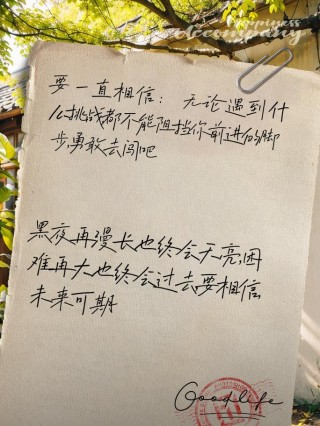 Happiness
company
要一直相信：无论遇到什
么挑战都不能阻挡你前进的脚
步,勇敢去闯吧
黑夜再漫长也终会天亮,困
难再大也终会过去要相信
未来可期
Good life